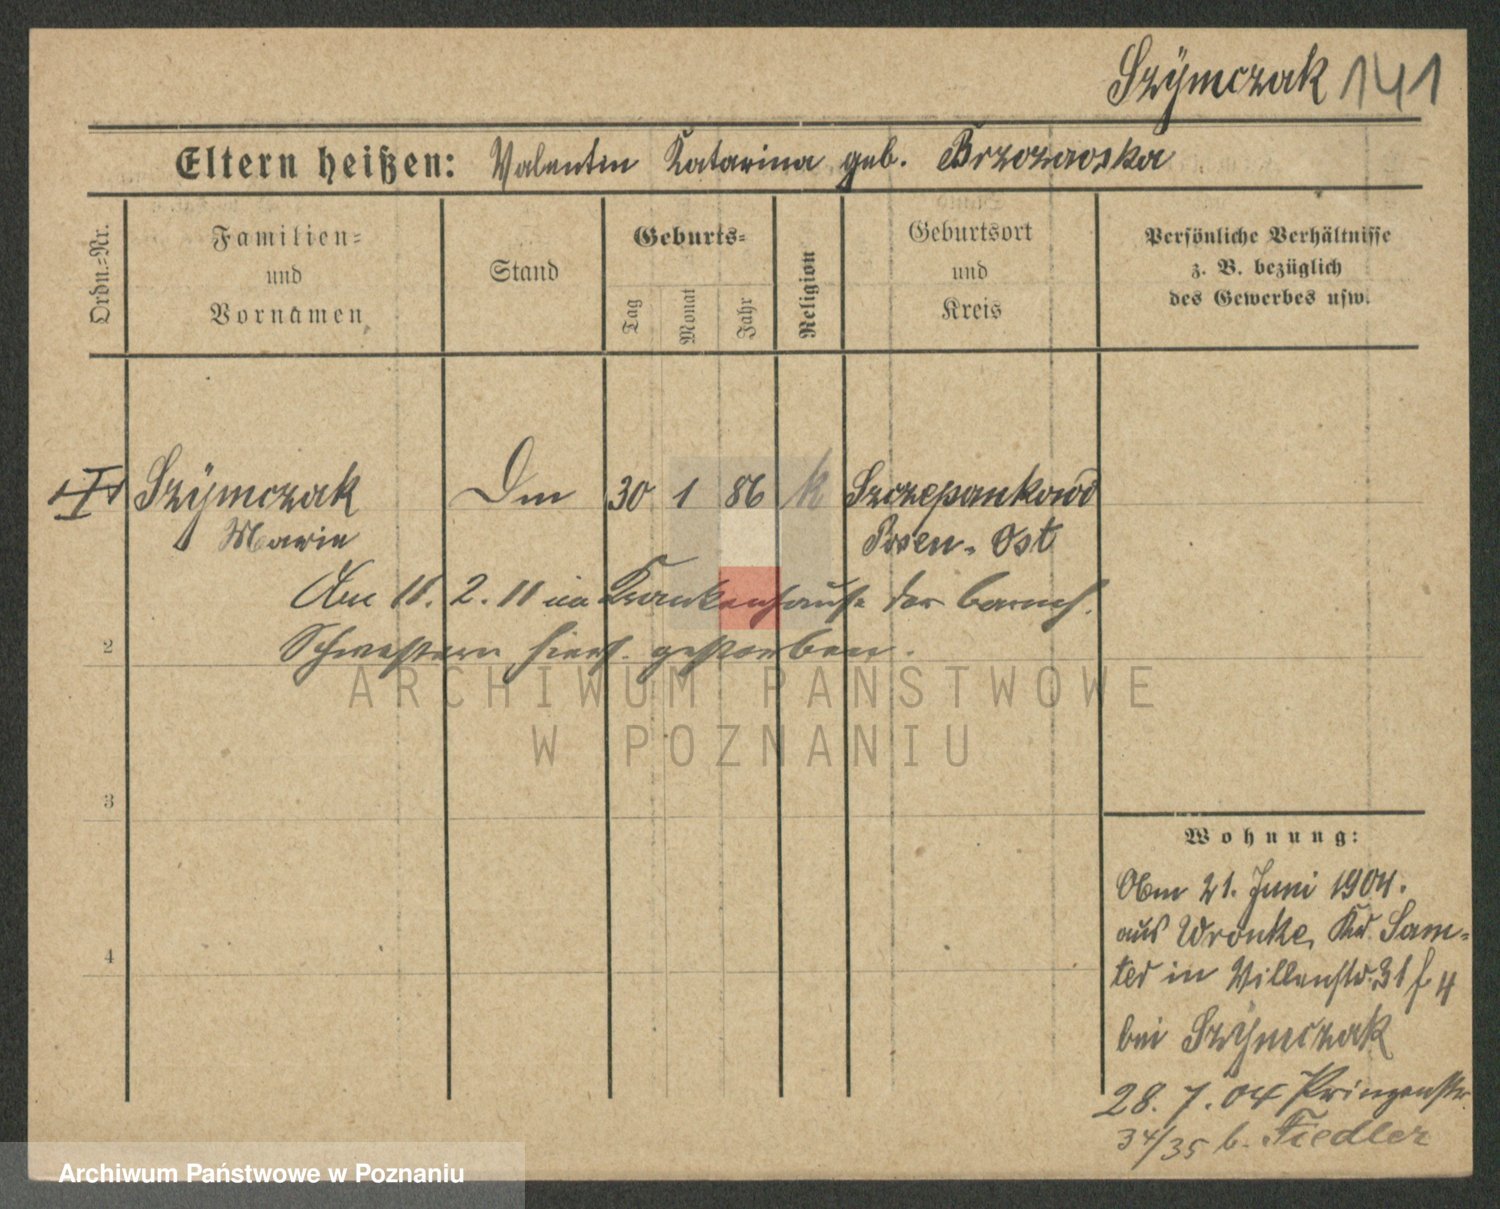 Szÿmczak 141
Eltern heißen: Valentin Katarina geb. Brzozowska
Ordn.-Nr.
Familien-
und
Vornamen
Stand
Geburts-
Tag
Monat
Jahr
Religion
Geburtsort
und
Kreis
Persönliche Verhältnisse
z. B. bezüglich
des Gewerbes usw.
Szÿmczak 30 1 86 k Szczepankowo
Marie Posen-Ost
Am 11. 2. 11 im Krankenhause der barmh.
Schwestern hiers. gestorben.
2
ARCHIWUM PAŃSTWOWE
W POZNANIU
3
4
Wohnung:
21. Juni 1904.
aus Wronke, Kr. Sam-
ter in Villenstr. 31 f 4
bei Szÿmczak
28. 7. 04 Prinzenstr.
34/35 b. Fiedler
Archiwum Państwowe w Poznaniu